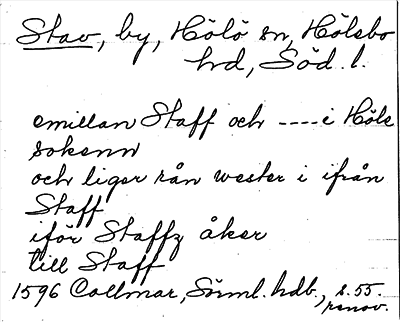 Stav, by, Hölö sn, Hölebo
hd, Söd. l.
emillan Staff och ---- i Höle
sokenn
och liger rån wester i ifrån
Staff
iför Staffz åker
till Staff
1596 Collmar, Sörml. hdb., s. 55.
renov.